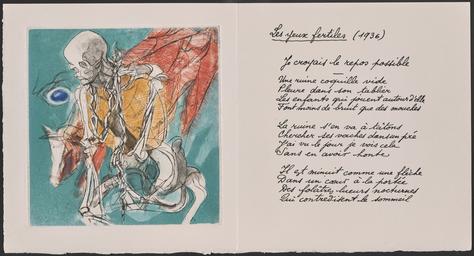 Les yeux fertiles (1936)
Je croyais le repos possible
Une ruine coquille vide
Pleure dans son tablier
Les enfants qui jouent autour d'elle
Font moins de bruit que des mouches
La ruine s'en va à tâtons
Chercher ses vaches dans un pré
J'ai vu le jour je vois cela
Sans en avoir honte
Il est minuit comme une flèche
Dans un cœur à la portée
Des folâtres lueurs nocturnes
Qui contredisent le sommeil